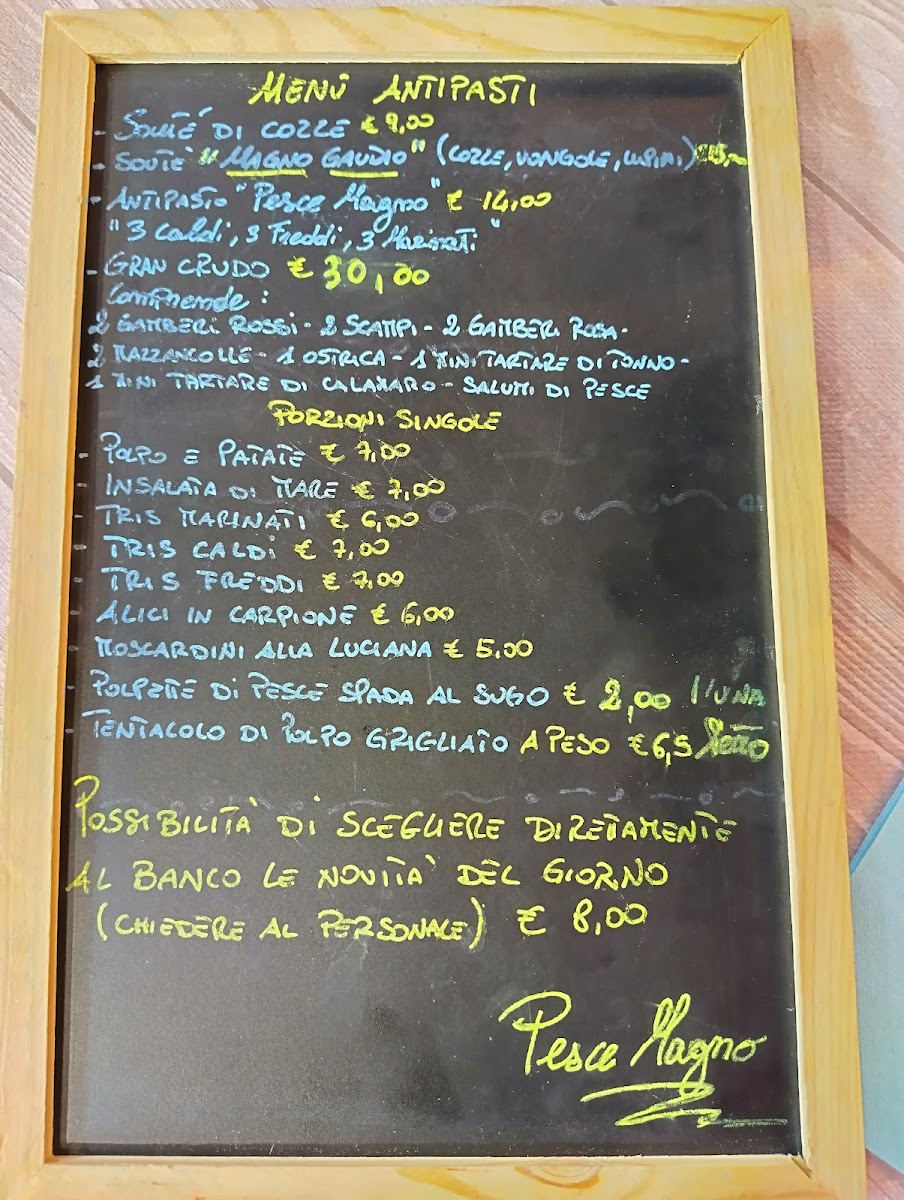 MENÚ ANTIPASTI
- SOUTÉ DI COZZE €
- SOUTÈ "MAGNO GAUDIO" (COZZE, VONGOLE, LUPINI)
- ANTIPASTO "Pesce Magno" € 14,00
"3 Caldi, 3 Freddi, 3 Marinati"
- GRAN CRUDO € 30,00
Comprende:
2 GAMBERI ROSSI - 2 SCAMPI - 2 GAMBERI ROSA -
2 MAZZANCOLLE - 1 OSTRICA - 1 MINI TARTARE DI TONNO -
1 MINI TARTARE DI CALAMARO - SALUMI DI PESCE
PORZIONI SINGOLE
- POLPO E PATATE € 7,00
- INSALATA DI MARE € 7,00
- TRIS MARINATI € 6,00
- TRIS CALDI € 7,00
- TRIS FREDDI € 7,00
- ALICI IN CARPIONE € 6,00
- MOSCARDINI ALLA LUCIANA € 5,00
- POLPETTE DI PESCE SPADA AL SUGO € 2,00 l'UNA
- TENTACOLO DI POLPO GRIGLIATO A PESO € 6,5 l'etto
POSSIBILITÀ DI SCEGLIERE DIRETTAMENTE
AL BANCO LE NOVITÀ DEL GIORNO
(CHIEDERE AL PERSONALE) € 8,00
Pesce Magno